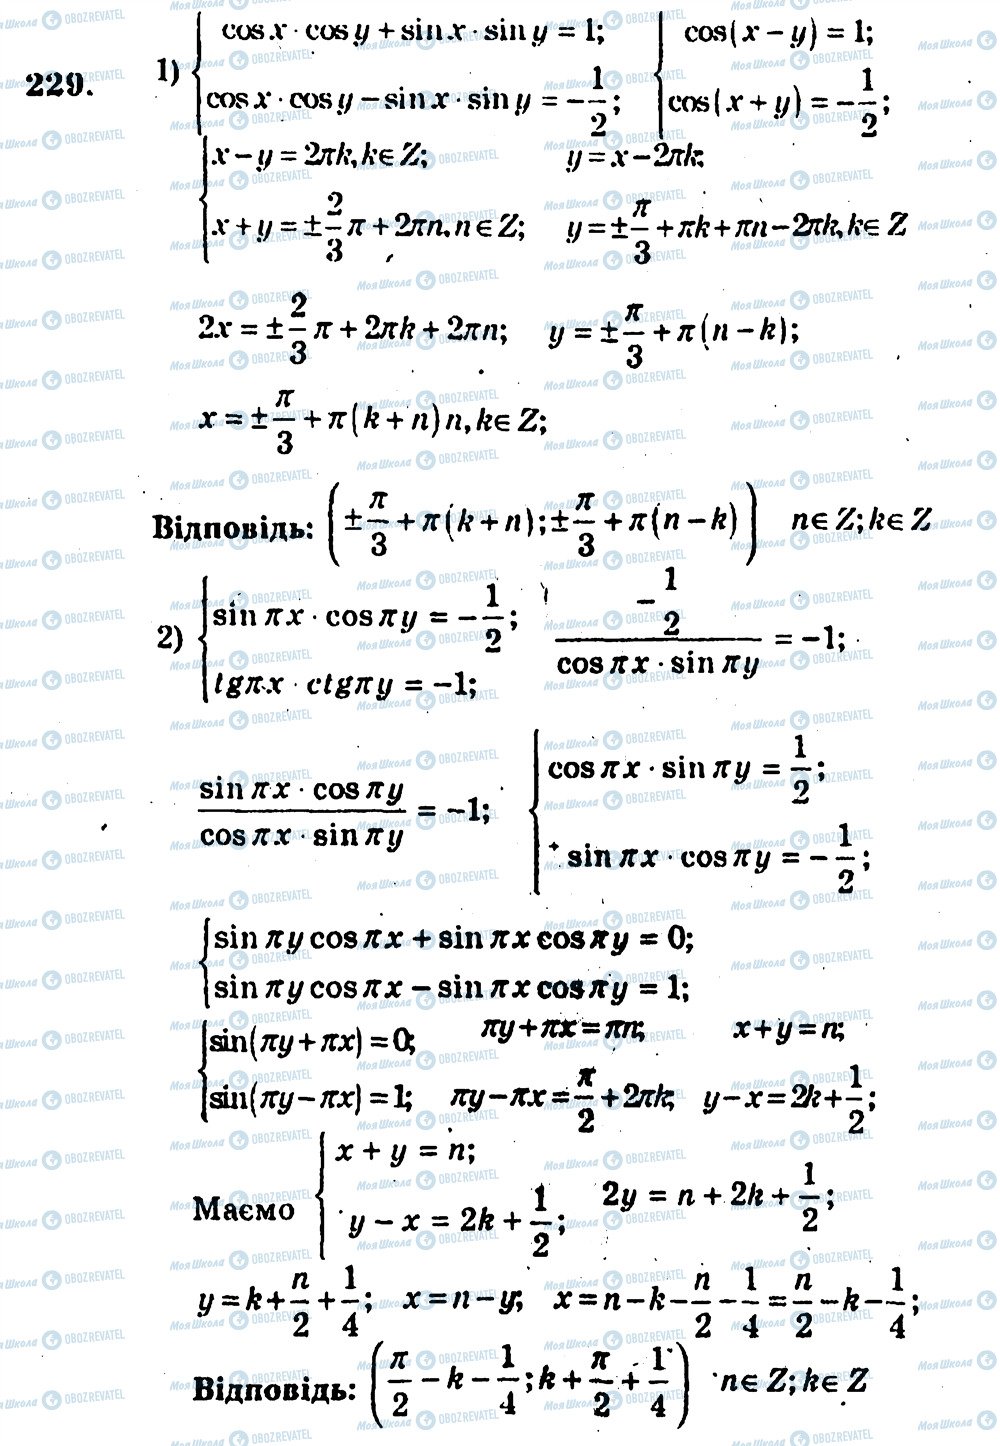 229. 1) { cos x · cos y + sin x · sin y = 1; { cos(x − y) = 1;
cos x · cos y − sin x · sin y = −1/2; cos(x + y) = −1/2;
{ x − y = 2πk, k∈Z; y = x − 2πk;
x + y = ±2/3 π + 2πn, n∈Z; y = ±π/3 + πk + πn − 2πk, k∈Z
2x = ±2/3 π + 2πk + 2πn; y = ±π/3 + π(n − k);
x = ±π/3 + π(k + n) n, k∈Z;
Відповідь: (±π/3 + π(k + n); ±π/3 + π(n − k)) n∈Z; k∈Z
2) { sin πx · cos πy = −1/2; (−1/2)/(cos πx · sin πy) = −1;
tgπx · ctgπy = −1;
(sin πx · cos πy)/(cos πx · sin πy) = −1; { cos πx · sin πy = 1/2;
+ sin πx · cos πy = −1/2;
{ sin πy cos πx + sin πx cos πy = 0;
sin πy cos πx − sin πx cos πy = 1;
{ sin(πy + πx) = 0; πy + πx = πn; x + y = n;
sin(πy − πx) = 1; πy − πx = π/2 + 2πk; y − x = 2k + 1/2;
Маємо { x + y = n;
y − x = 2k + 1/2; 2y = n + 2k + 1/2;
y = k + n/2 + 1/4; x = n − y; x = n − k − n/2 − 1/4 = n/2 − k − 1/4;
Відповідь: (π/2 − k − 1/4; k + π/2 + 1/4) n∈Z; k∈Z
Моя Школа OBOZREVATEL